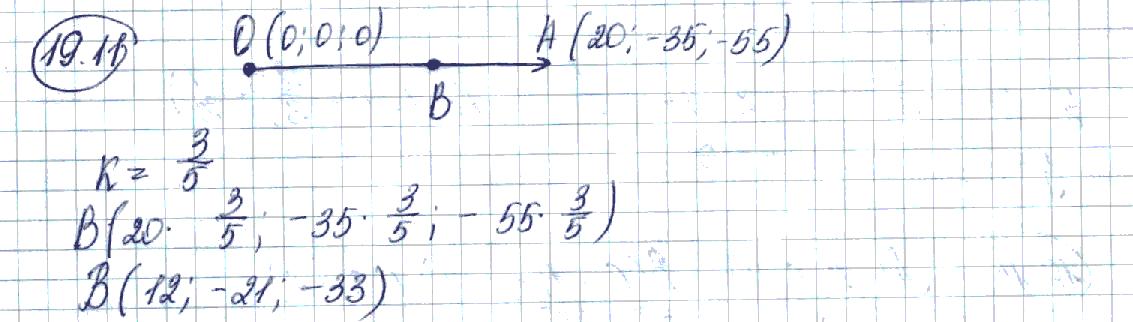 19.11 O(0; 0; 0) A(20; -35; -55)
B
K = 3/5
B(20 · 3/5; -35 · 3/5; -55 · 3/5)
B(12; -21; -33)